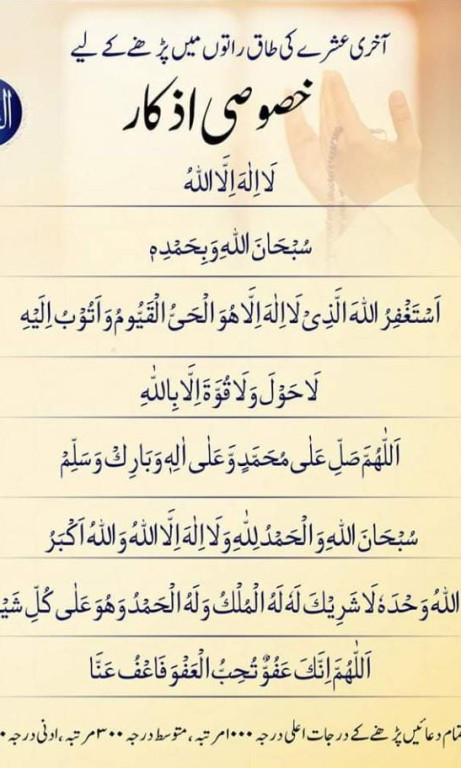 آخری عشرے کی طاق راتوں میں پڑھنے کے لیے
خصوصی اذکار
لَا اِلٰهَ اِلَّا اللهُ
سُبْحَانَ اللهِ وَبِحَمْدِهٖ
اَسْتَغْفِرُ اللهَ الَّذِیْ لَا اِلٰهَ اِلَّا هُوَ الْحَیُّ الْقَیُّوْمُ وَاَتُوْبُ اِلَیْهِ
لَا حَوْلَ وَلَا قُوَّةَ اِلَّا بِاللهِ
اَللّٰهُمَّ صَلِّ عَلٰی مُحَمَّدٍ وَّعَلٰی اٰلِهٖ وَبَارِكْ وَسَلِّمْ
سُبْحَانَ اللهِ وَالْحَمْدُ لِلّٰهِ وَلَا اِلٰهَ اِلَّا اللهُ وَاللهُ اَکْبَرُ
اللهُ وَحْدَهٗ لَا شَرِیْكَ لَهٗ لَهُ الْمُلْكُ وَلَهُ الْحَمْدُ وَهُوَ عَلٰی کُلِّ شَیْ
اَللّٰهُمَّ اِنَّكَ عَفُوٌّ تُحِبُّ الْعَفْوَ فَاعْفُ عَنَّا
دعائیں پڑھنے کے درجات اعلی درجہ ۱۰۰۰ مرتبہ، متوسط درجہ ۳۰۰ مرتبہ، ادنی درجہ